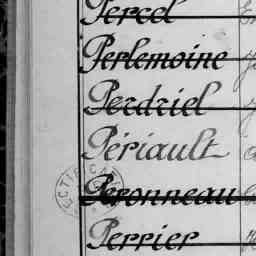 Percel
Perlemoine
Perdriel
Périault
Peronneau
Perrier